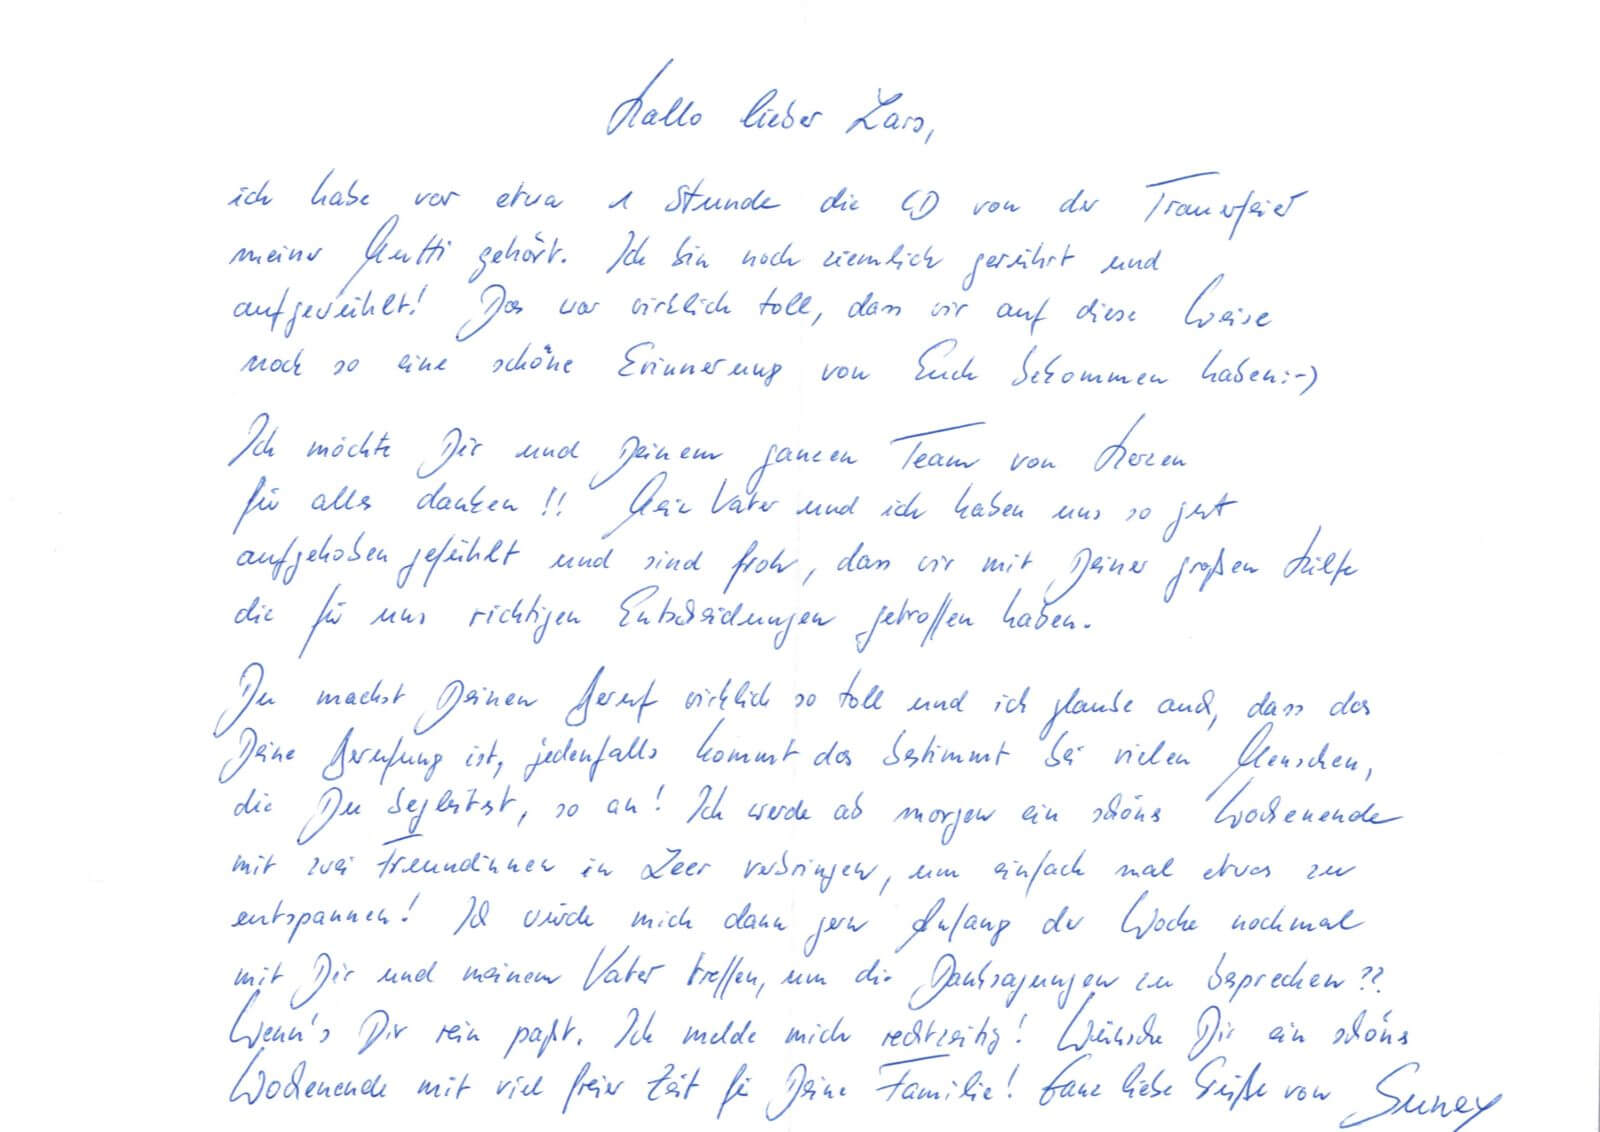 Hallo lieber Lars,
ich habe vor etwa 1 Stunde die CD von der Trauerfeier
meiner Mutti gehört. Ich bin noch ziemlich gerührt und
aufgewühlt! Das war wirklich toll, dass wir auf diese Weise
noch so eine schöne Erinnerung von Euch bekommen haben:-)
Ich möchte Dir und Deinem ganzen Team von Herzen
für alles danken!! Mein Vater und ich haben uns so gut
aufgehoben gefühlt und sind froh, dass wir mit Deiner großen Hilfe
die für uns richtigen Entscheidungen getroffen haben.
Du machst Deinen Beruf wirklich so toll und ich glaube auch, dass das
Deine Berufung ist, jedenfalls kommt das bestimmt bei vielen Menschen,
die Du begleitest, so an! Ich werde ab morgen ein schönes Wochenende
mit zwei Freundinnen in Leer verbringen, um einfach mal etwas zu
entspannen! Ich würde mich dann gern Anfang der Woche nochmal
mit Dir und meinem Vater treffen, um die Danksagungen zu besprechen??
Wenn's Dir rein paßt. Ich melde mich rechtzeitig! Wünsche Dir ein schönes
Wochenende mit viel freier Zeit für Deine Familie! Ganz liebe Grüße von